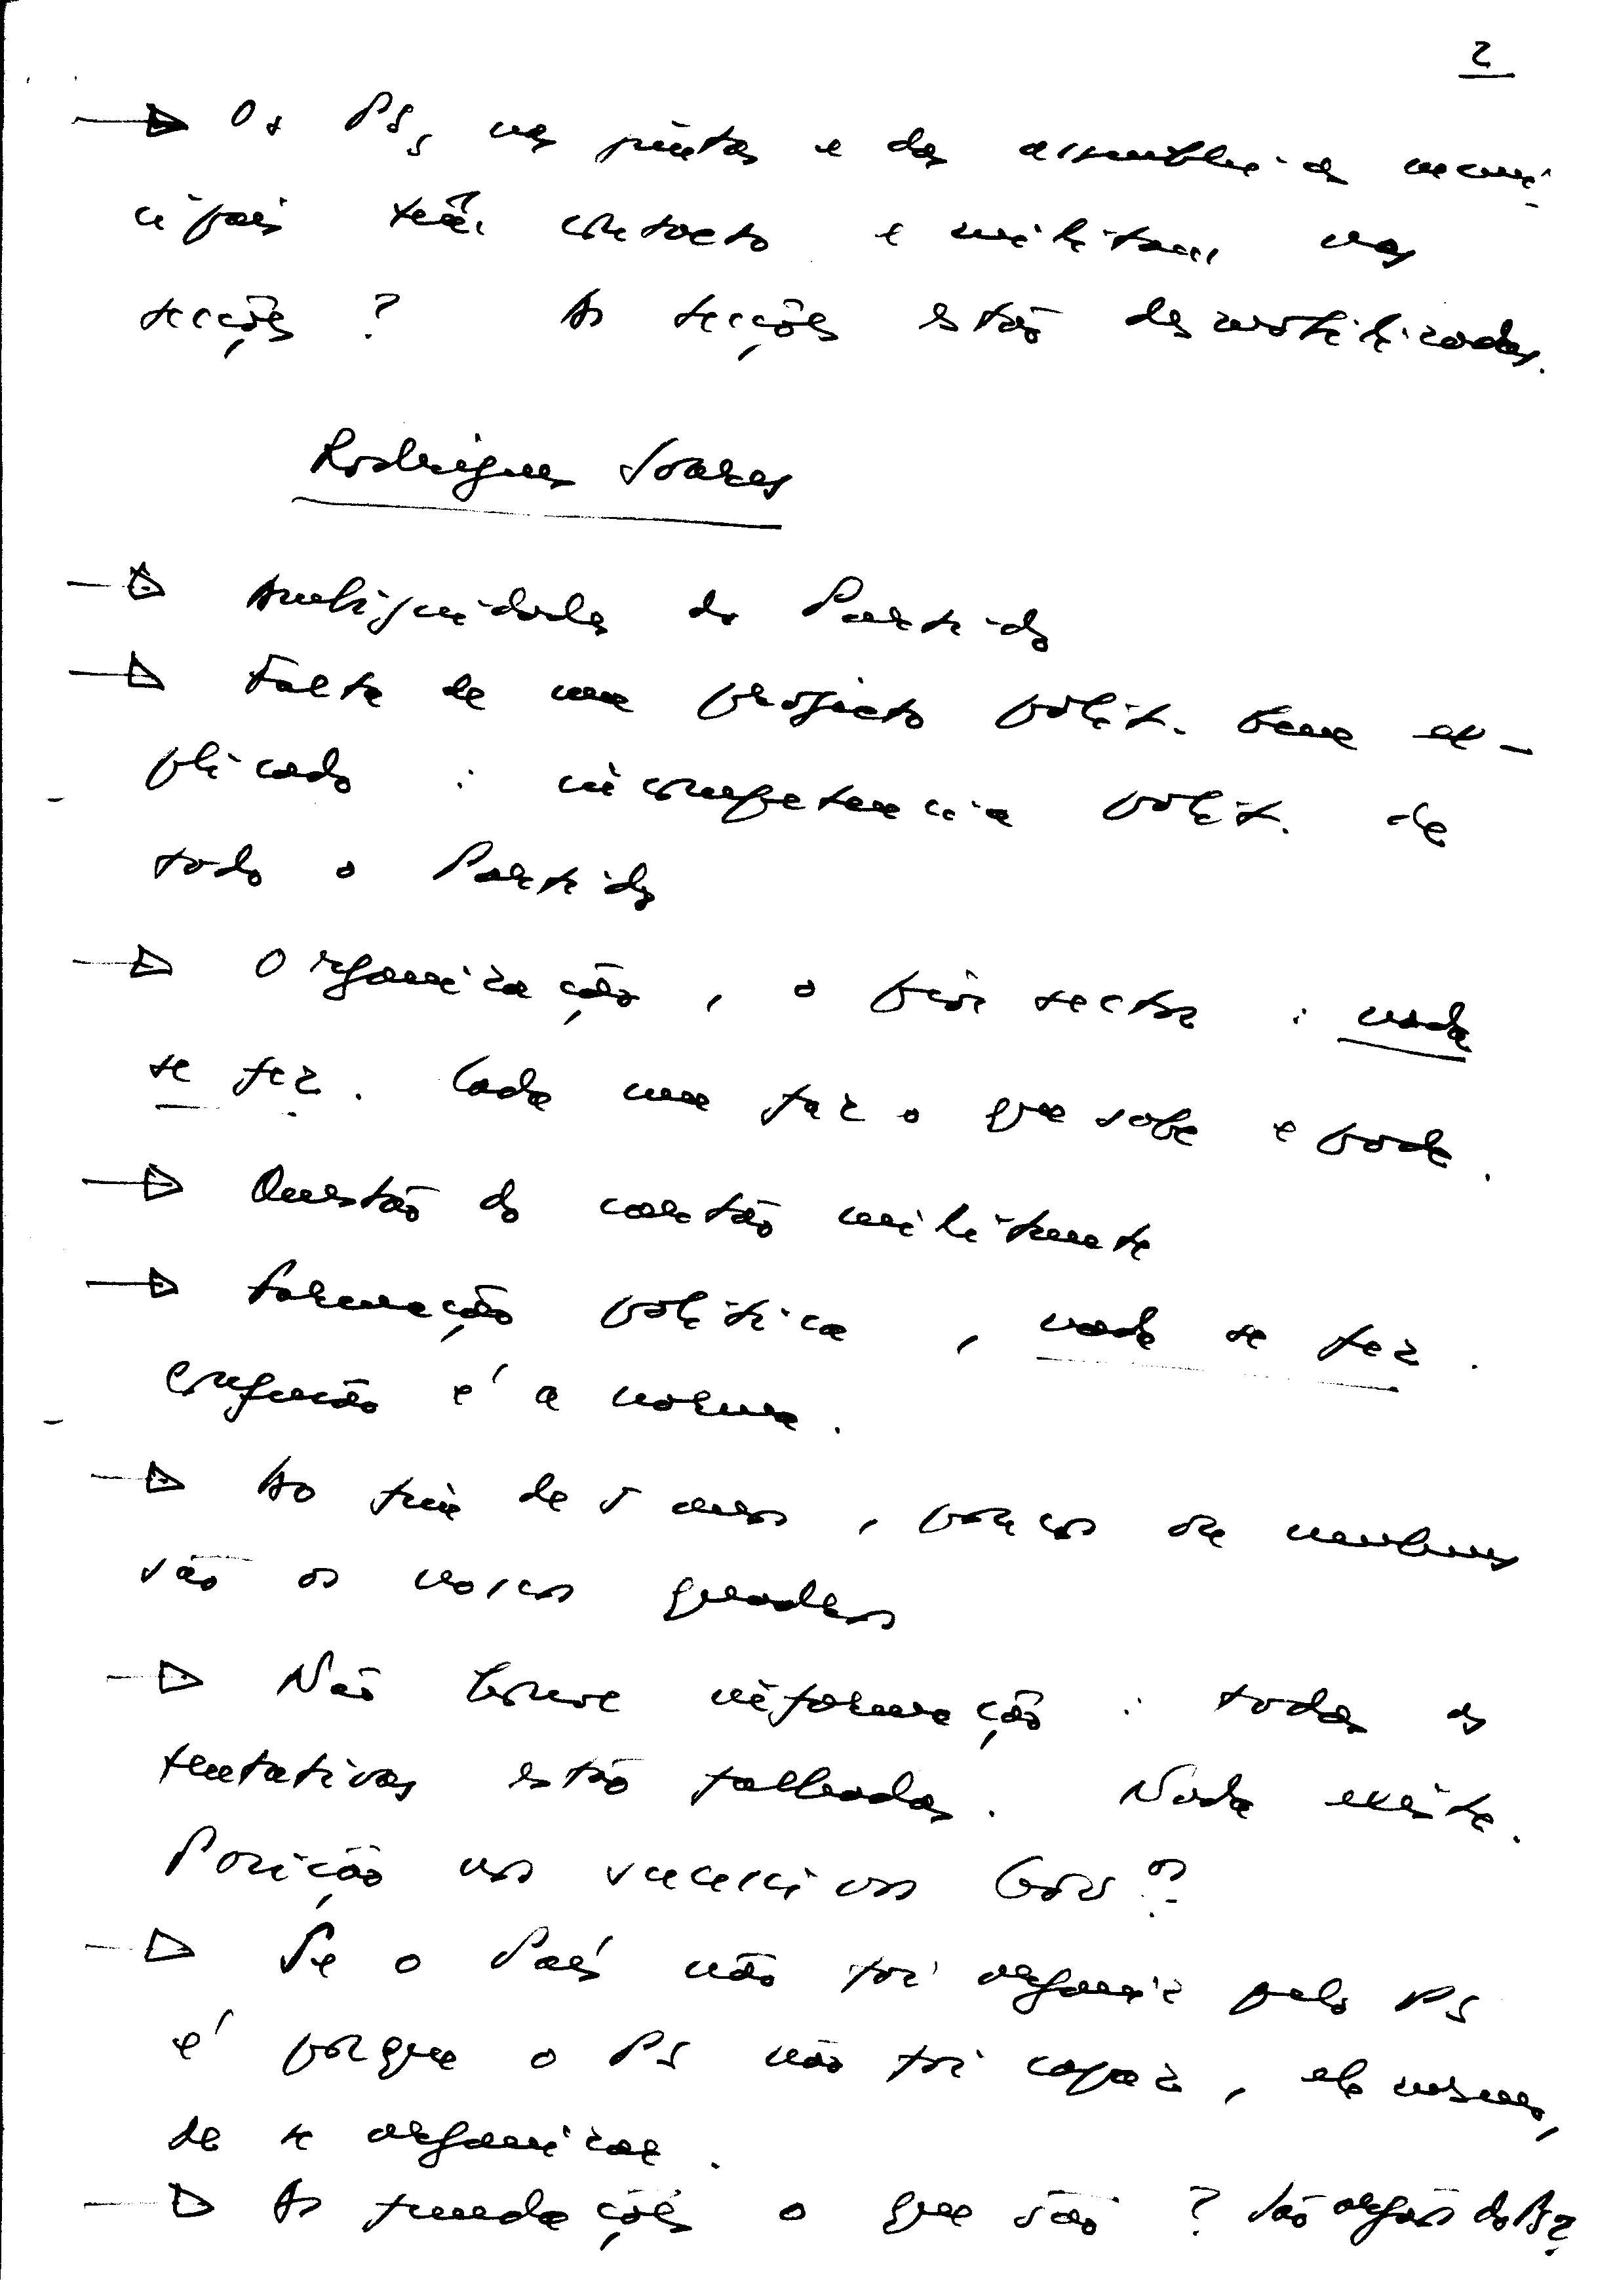 2
→ Os PSs nas juntas e das assembleias muni-
cipais têm contacto e militam nas
secções? As secções estão desmobilizadas.
Rodrigues Soares
→ Ambiguidades do Partido
→ Falta de um projecto polit. bem ex-
plicado : incompetencia polit. de
todo o Partido
→ Organização, o pior sector : nada
se fez. Cada um faz o que sabe e pode.
→ Questão do cartão militante
→ Formação politica, nada se fez.
Confusão é a norma.
→ Ao fim de 5 anos, poucos ou nenhuns
são os novos quadros
→ Não houve informação : todas as
tentativas estão falhadas. Nada existe.
Posição nos sucessivos Govos?
→ Se o País não foi organiz pelo PS
é porque o PS não foi capaz, ele mesmo,
de se organizar.
→ As fundações o que são? São orgãos do PS?